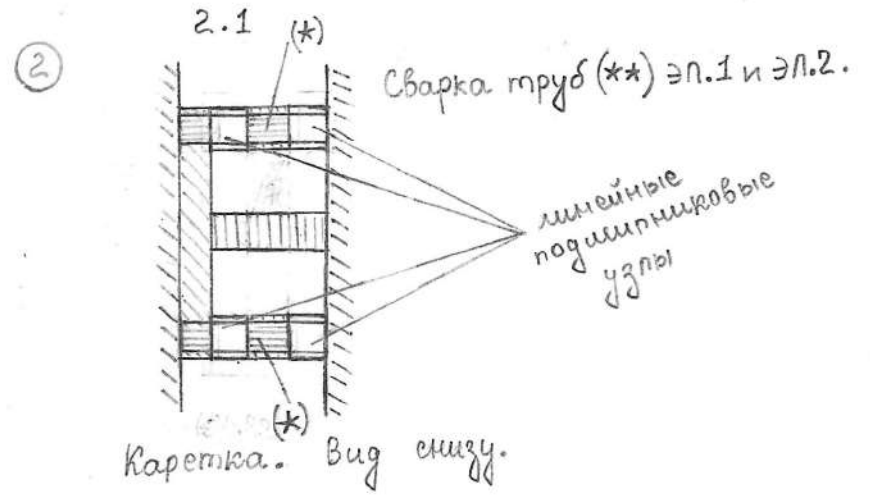 2.1
(*)
2
Сварка труб (**) эл.1 и эл.2.
линейные
подшипниковые
узлы
(*)
Каретка. Вид снизу.